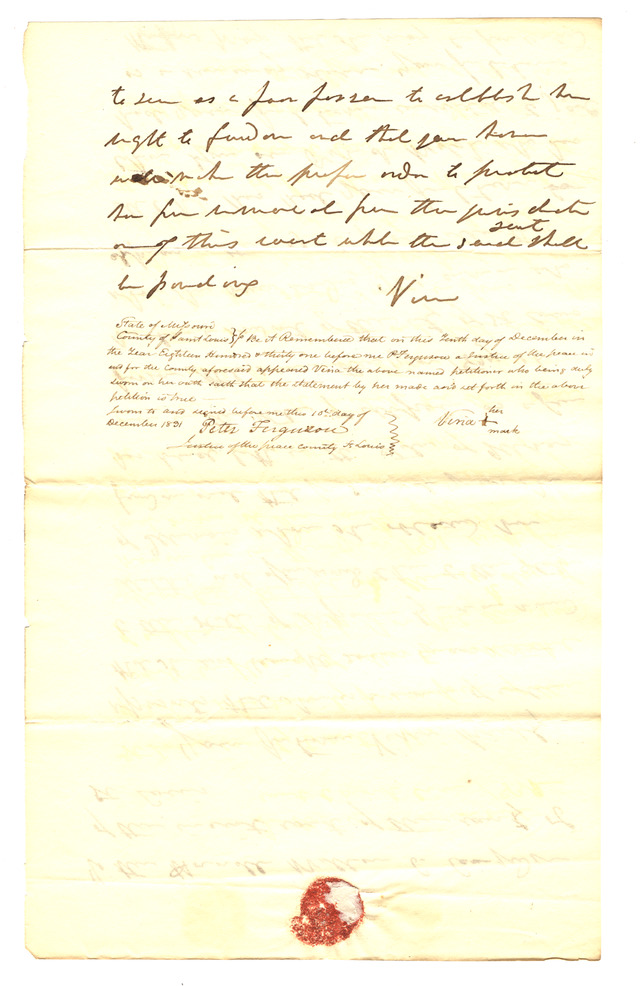 to sue as a poor person to establish her
right to freedom and that your honor
will make the proper order to protect
her from removal from the jurisdicti
on of this court while the said suit shall
be pending
Vina
State of Missouri
County of Saint Louis } ss Be it Remembered that on this Tenth day of December in
the Year Eighteen Hundred & thirty one before me P Ferguson a Justice of the peace in
and for the County aforesaid appeared Vina the above named petitioner who being duly
sworn on her oath saith that the statement by her made as is set forth in the above
petition is true
Sworn to and signed before me this 10th day of
December 1831
Peter Ferguson
Justice of the peace County St Louis
Vina her
mark